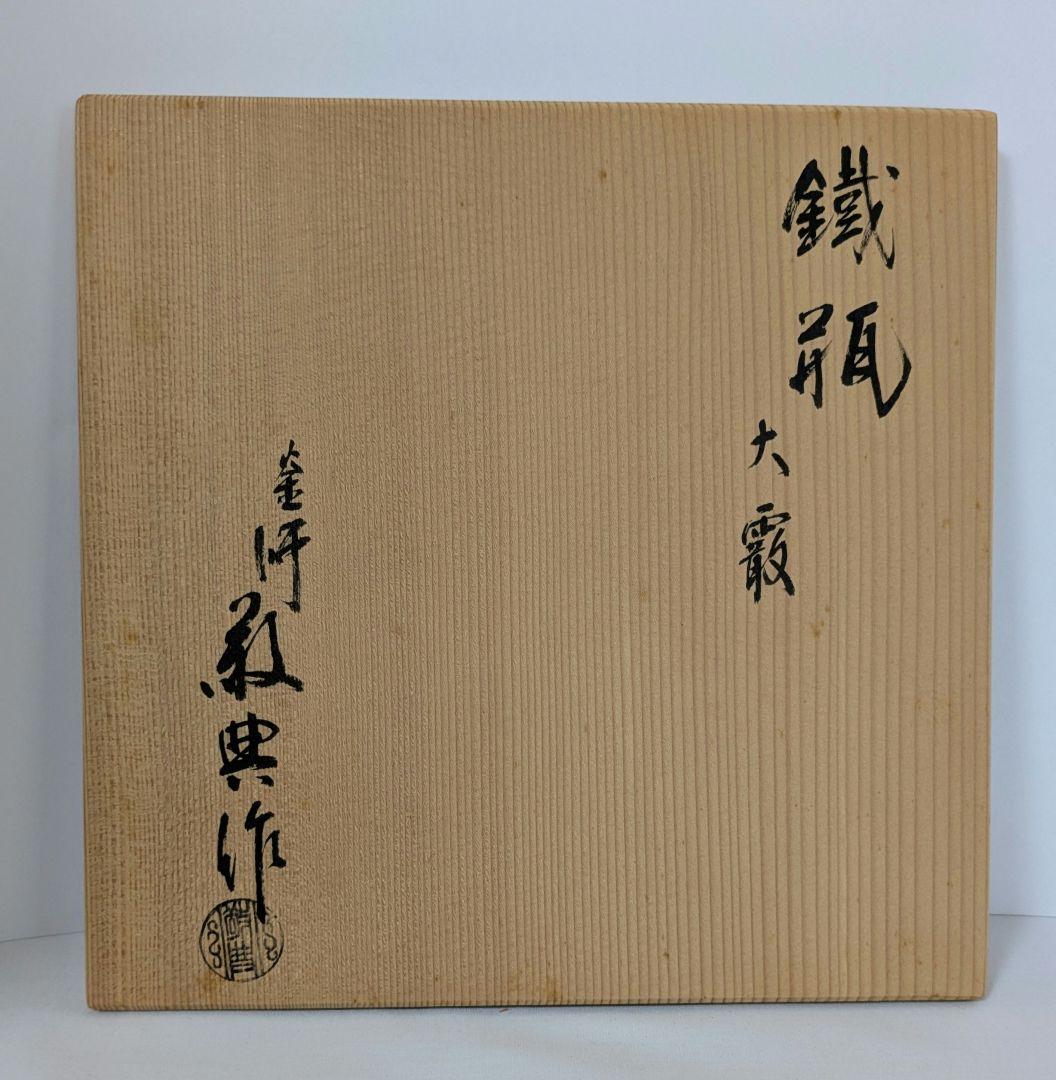 鐵瓶
大霰
釜師
敬典作